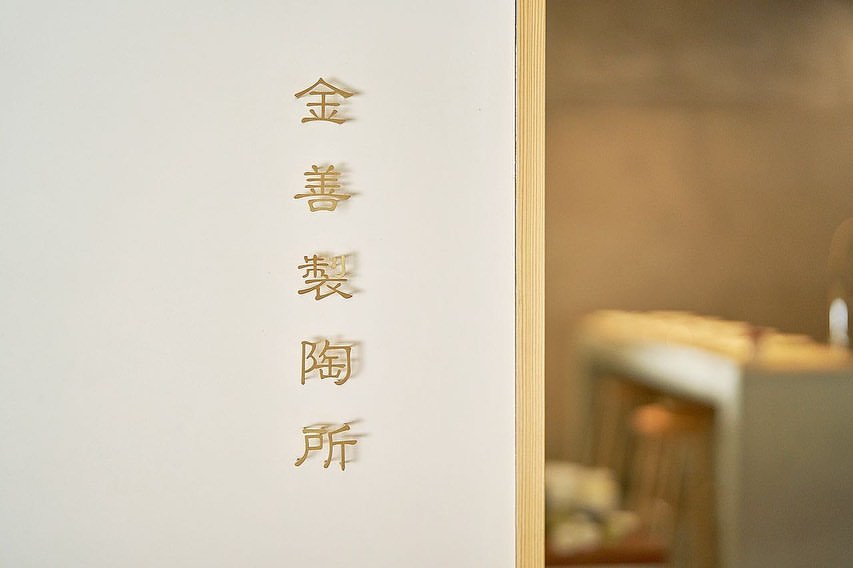 金善製陶所